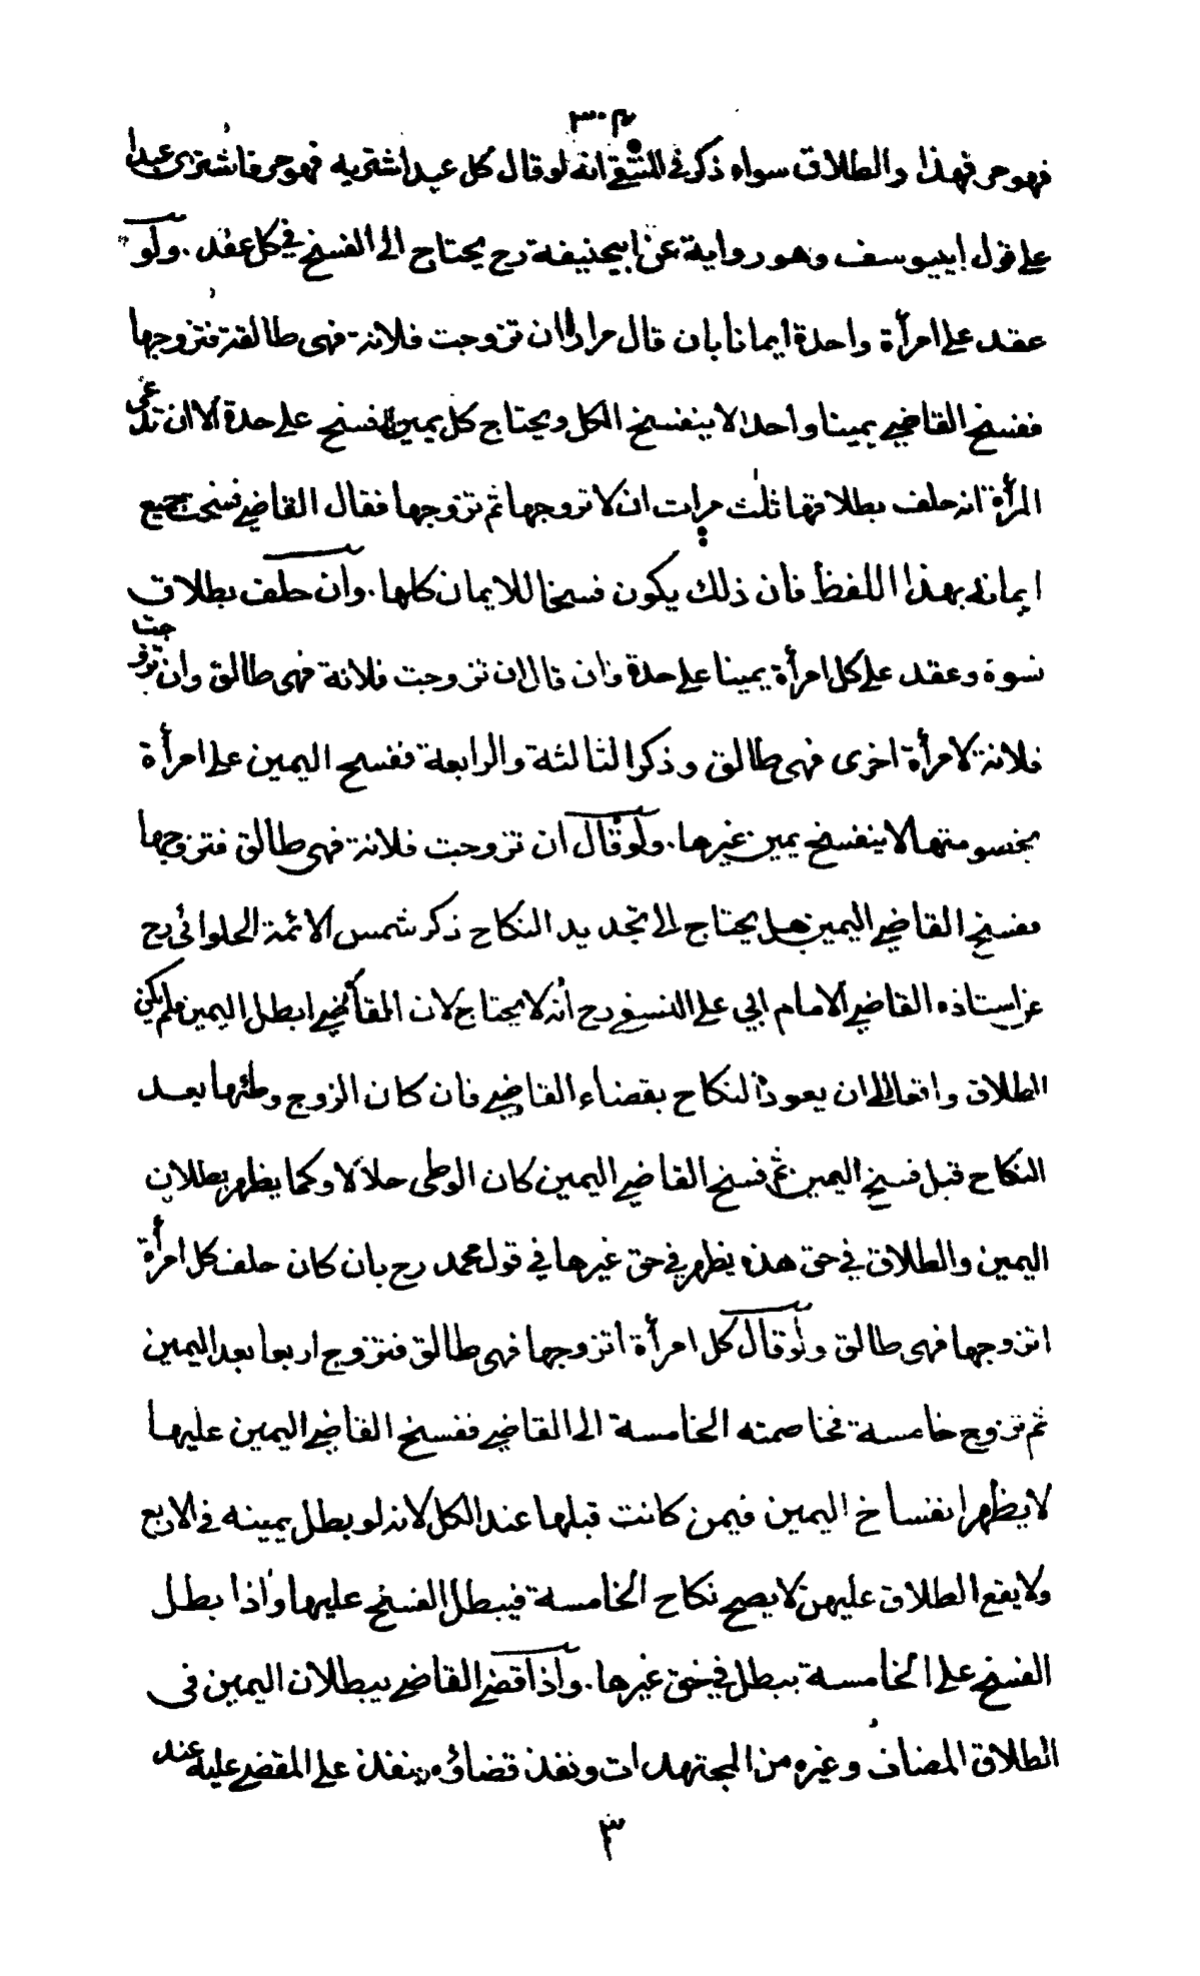 ٣٠٣
فهو حر فهذا والطلاق سواء ذكر فى المنتقى انه لو قال كل عبد اشتريه فهو حر فاشترى عبدا
على قول ابييوسف وهو رواية عن ابيحنيفة رح يحتاج الى الفسخ في كل عقد . ولو
عقد على امرأة واحدة ايمانا بان قال مرارا ان تزوجت فلانة فهى طالقة فتزوجها
ففسخ القاضي يمينا واحدا لا ينفسخ الكل ويحتاج كل يمين الى فسخ على حدة الا ان تدعى
المرأة انه حلف بطلاقها ثلث مرات ان لا تزوجها ثم تزوجها فقال القاضي فسخت جميع
ايمانه بهذا اللفظ فان ذلك يكون فسخا للايمان كلها . وان حلف بطلاق
نسوة وعقد على كل امرأة يمينا على حدة فان قال ان تزوجت فلانة فهى طالق وان تزوجت
فلانة لامرأة اخرى فهى طالق وذكر الثالثة والرابعة ففسخ اليمين على امرأة
بخسومتها لا ينفسخ يمين غيرها . ولو قال ان تزوجت فلانة فهى طالق فتزوجها
ففسخ القاضي اليمين هل يحتاج الى تجديد النكاح ذكر شمس الائمة الحلوائى رح
عن استاذه القاضي الامام ابي على النسفي رح أنه لا يحتاج لان القاضي ابطل اليمين فلم يكن
الطلاق واقعا الى ان يعود النكاح بقضاء القاضي فان كان الزوج وطئها بعد
النكاح قبل فسخ اليمين ثم فسخ القاضي اليمين كان الوطى حلالا وكما يظهر بطلان
اليمين والطلاق في حق هذه يظهر في حق غيرها في قول محمد رح بان كان حلف كل امرأة
اتزوجها فهى طالق ولو قال كل امرأة اتزوجها فهى طالق فتزوج اربعا بعد اليمين
ثم تزوج خامسة فخاصمته الخامسة الى القاضي ففسخ القاضي اليمين عليها
لا يظهر انفساخ اليمين فيمن كانت قبلها عند الكل لانه لو بطل يمينه فى الاربع
ولا يقع الطلاق عليهن لا يصح نكاح الخامسة فيبطل الفسخ عليها واذا بطل
الفسخ على الخامسة يبطل في حق غيرها . واذا قضى القاضي ببطلان اليمين فى
الطلاق المضاف وغيره من المجتهدات ونفذ قضاؤه ينفذ على المقضي عليه عند
٣